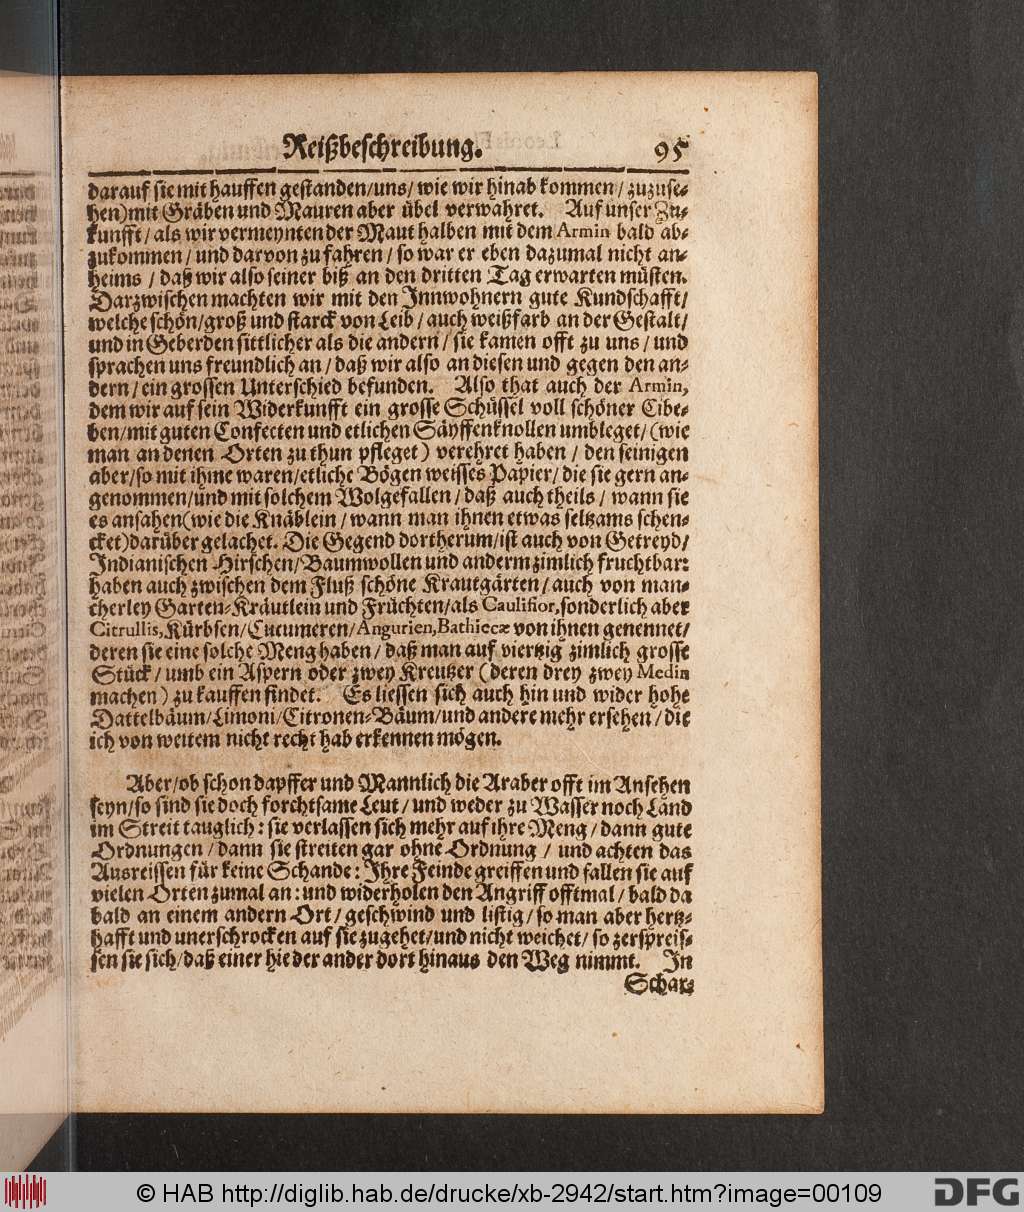 Reißbeschreibung. 95
darauf sie mit hauffen gestanden/uns/ wie wir hinab kommen/ zuzuse-
hen)mit Gräben und Mauren aber übel verwahret. Auf unser Zu-
kunfft/ als wir vermeynten der Maut halben mit dem Armin bald ab-
zukommen/ und darvon zu fahren/ so war er eben dazumal nicht an-
heims / daß wir also seiner biß an den dritten Tag erwarten müsten.
Darzwischen machten wir mit den Innwohnern gute Kundschafft/
welche schön/groß und starck von Leib/ auch weißfarb an der Gestalt/
und in Geberden sittlicher als die andern/ sie kamen offt zu uns/ und
sprachen uns freundlich an/ daß wir also an diesen und gegen den an-
dern/ ein grossen Unterschied befunden. Also that auch der Armin,
dem wir auf sein Widerkunfft ein grosse Schüssel voll schöner Cibe-
ben/mit guten Confecten und etlichen Säyffenknollen umbleget/ (wie
man an denen Orten zu thun pfleget) verehret haben / den seinigen
aber/so mit ihme waren/etliche Bögen weisses Papier/ die sie gern an-
genommen/und mit solchem Wolgefallen/ daß auch theils/ wann sie
es ansahen(wie die Knäblein/ wann man ihnen etwas seltzams schen-
cket)darüber gelachet. Die Gegend dortherum/ist auch von Getreyd/
Indianischen Hirschen/Baumwollen und anderm zimlich fruchtbar:
haben auch zwischen dem Fluß schöne Krautgärten/ auch von man-
cherley Garten-Kräutlein und Früchten/als Caulifior, sonderlich aber
Citrullis, Kürbsen/Cucumeren/Angurien, Bathiecæ von ihnen genennet/
deren sie eine solche Meng haben/ daß man auf viertzig zimlich grosse
Stück/ umb ein Aspern oder zwey Kreutzer (deren drey zwey Medin
machen) zu kauffen findet. Es liessen sich auch hin und wider hohe
Dattelbäum/Limoni/Citronen-Bäum/und andere mehr ersehen/ die
ich von weitem nicht recht hab erkennen mögen.
Aber/ob schon dapffer und Mannlich die Araber offt im Ansehen
seyn/so sind sie doch forchtsame Leut/ und weder zu Wasser noch Land
im Streit tauglich: sie verlassen sich mehr auf ihre Meng/ dann gute
Ordnungen/ dann sie streiten gar ohne Ordnung / und achten das
Ausreissen für keine Schande: Ihre Feinde greiffen und fallen sie auf
vielen Orten zumal an: und widerholen den Angriff offtmal/ bald da
bald an einem andern Ort/ geschwind und listig/ so man aber hertz-
hafft und unerschrocken auf sie zugehet/und nicht weichet/ so zerspreis-
sen sie sich/daß einer hie der ander dort hinaus den Weg nimmt. In
Schar-
© HAB http://diglib.hab.de/drucke/xb-2942/start.htm?image=00109
DFG